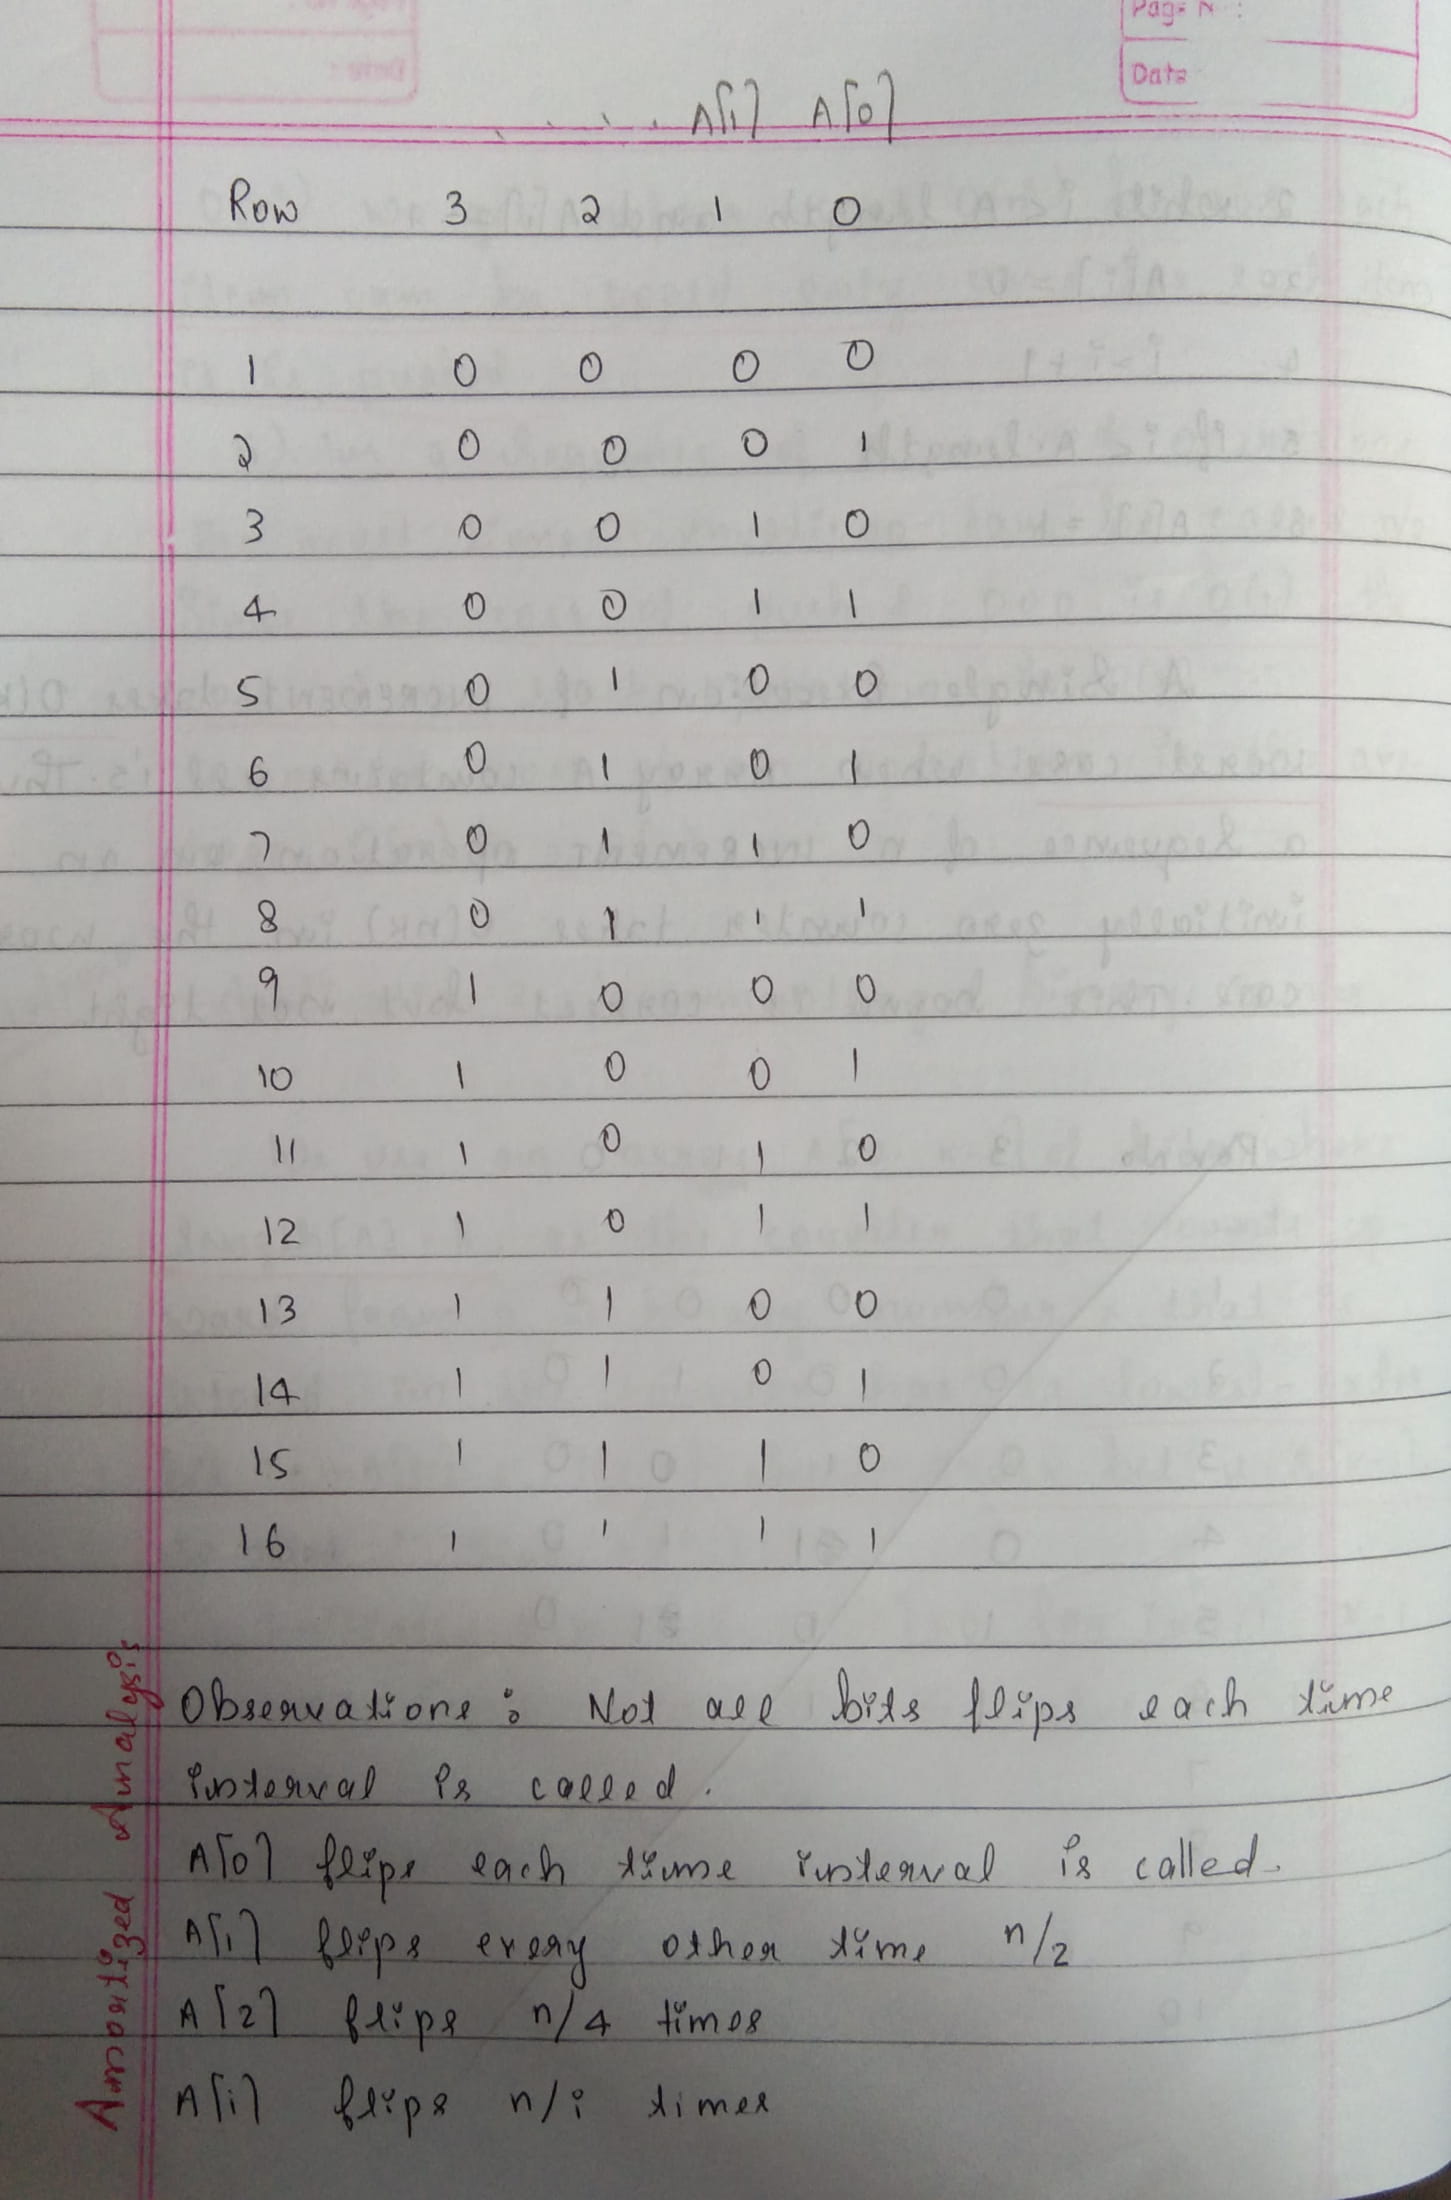 Page N :
Date
. . . . A[1] A[0]
Row 3 2 1 0
1 0 0 0 0
2 0 0 0 1
3 0 0 1 0
4 0 0 1 1
5 0 1 0 0
6 0 1 0 1
7 0 1 1 0
8 0 1 1 1
9 1 0 0 0
10 1 0 0 1
11 1 0 1 0
12 1 0 1 1
13 1 1 0 0
14 1 1 0 1
15 1 1 1 0
16 1 1 1 1
Amortized Analysis
Observations : Not all bits flips each time
interval is called.
A[0] flips each time interval is called.
A[1] flips every other time n/2
A[2] flips n/4 times
A[i] flips n/i times